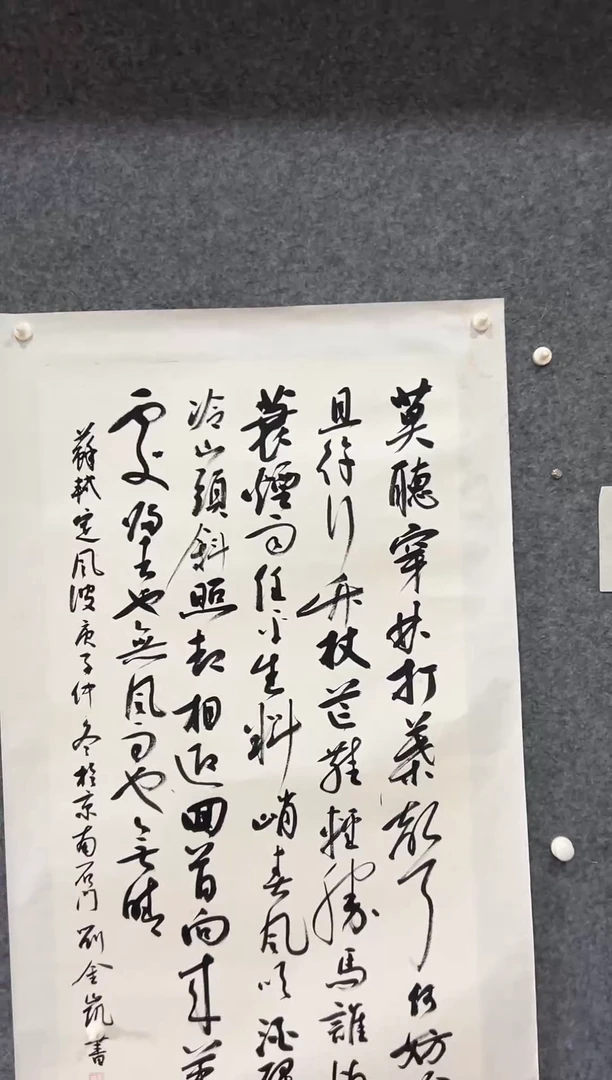 莫聽穿林打葉聲何妨
且徐行竹杖芒鞋輕勝馬誰怕
蓑煙雨任平生料峭春風吹酒醒
冷山頭斜照却相迎回首向來蕭
處歸去也無風雨也無晴
蘇軾定風波庚子仲冬於京南石门刘金凱書